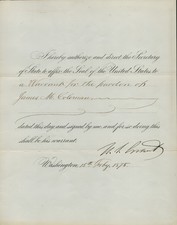 I hereby authorize and direct the Secretary
of State to affix the Seal of the United States to
a Warrant for the pardon of
James M. Coleman
dated this day and signed by me and for so doing this
shall be his warrant.
U. S. Grant
Washington, 18th Feby, 1875